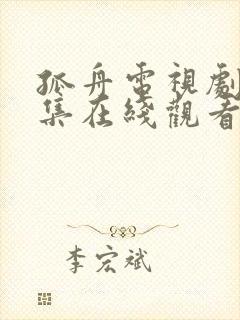 孤舟電視劇
集在綫觀看
李宏斌